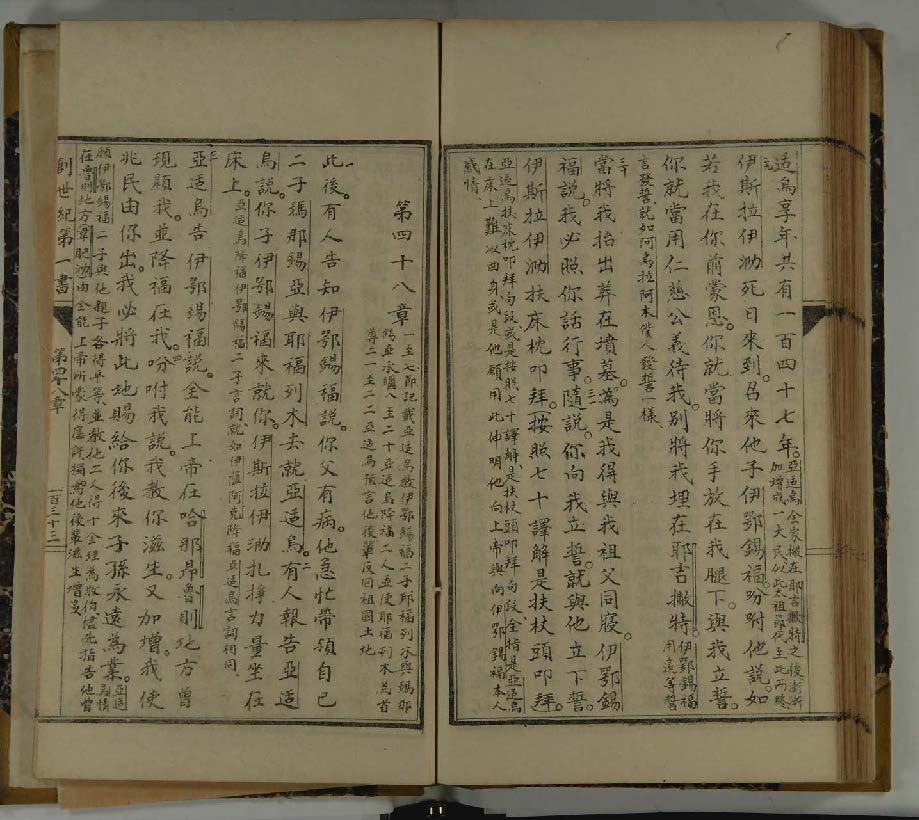 适烏享年共有一百四十七年。亞适烏全家搬在耶吉撇特之後漸漸
加增成一大民
伊斯拉伊泐死日來到。召來他子伊鄂錫福。吩咐他說。如
若我在你前蒙恩。你就當將你手放在我腿下。與我立誓。
你就當用仁慈公義待我。别將我埋在耶吉撇特。伊鄂錫福用這等誓
言發誓就如阿烏拉阿木僕人發誓一樣
三十
當將我抬出葬在墳墓。為是我得與我祖父同寢。伊鄂錫
福說。我必照你話行事。隨說。你向我立誓。就與他立下誓。
伊斯拉伊泐扶床枕叩拜。按照七十譯解是扶杖頭叩拜。
亞适烏扶床枕叩拜句或是按照七十譯解是扶杖頭叩拜句
在床上難以曲身或是他願用此伸明他向上帝與向伊鄂錫福本人
感情
第四十八章
一至七節記載亞适烏收伊鄂錫福二子
八至二十亞适烏降福二人並使耶福列木為首
二一至二二亞适烏預言他後輩反回祖國土地
一
此後。有人告知伊鄂錫福說。你父有病。他急忙帶領自己
二子瑪那錫亞與耶福列木去就亞适烏。二有人報告亞适
烏說。你子伊鄂錫福來就你。伊斯拉伊泐扎掙力量坐在
床上。亞适烏降福伊鄂錫福二子言詞就如伊薩阿克降福亞适烏言詞相同
三
亞适烏告伊鄂錫福說。全能上帝在哈那昂魯則地方曾
現顯我。並降福在我。四吩咐我說。我教你滋生。又加增。我使
兆民由你出。我必將此地賜給你後來子孫永遠為業。亞适烏情
願伊鄂錫福二子與他親子各得平等並教他二人得十全理
在魯則地方由全能上帝所蒙得應許獨為他後輩滋生增多
創世紀第一書
第四十八章
一百三十三